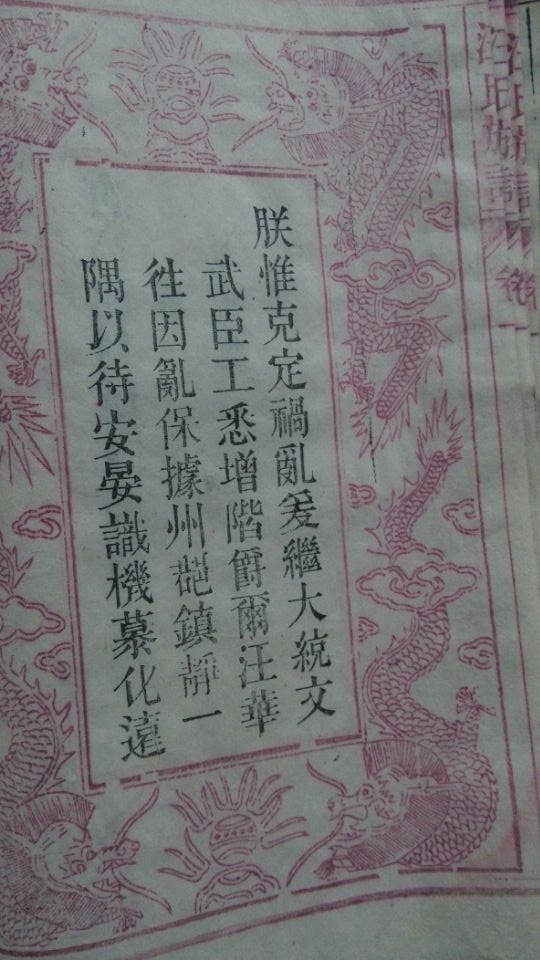 朕惟克定禍亂爰繼大統文
武臣工悉增階爵爾汪華
徃因亂保據州郡鎮靜一
隅以待安晏識機慕化遠
卷一